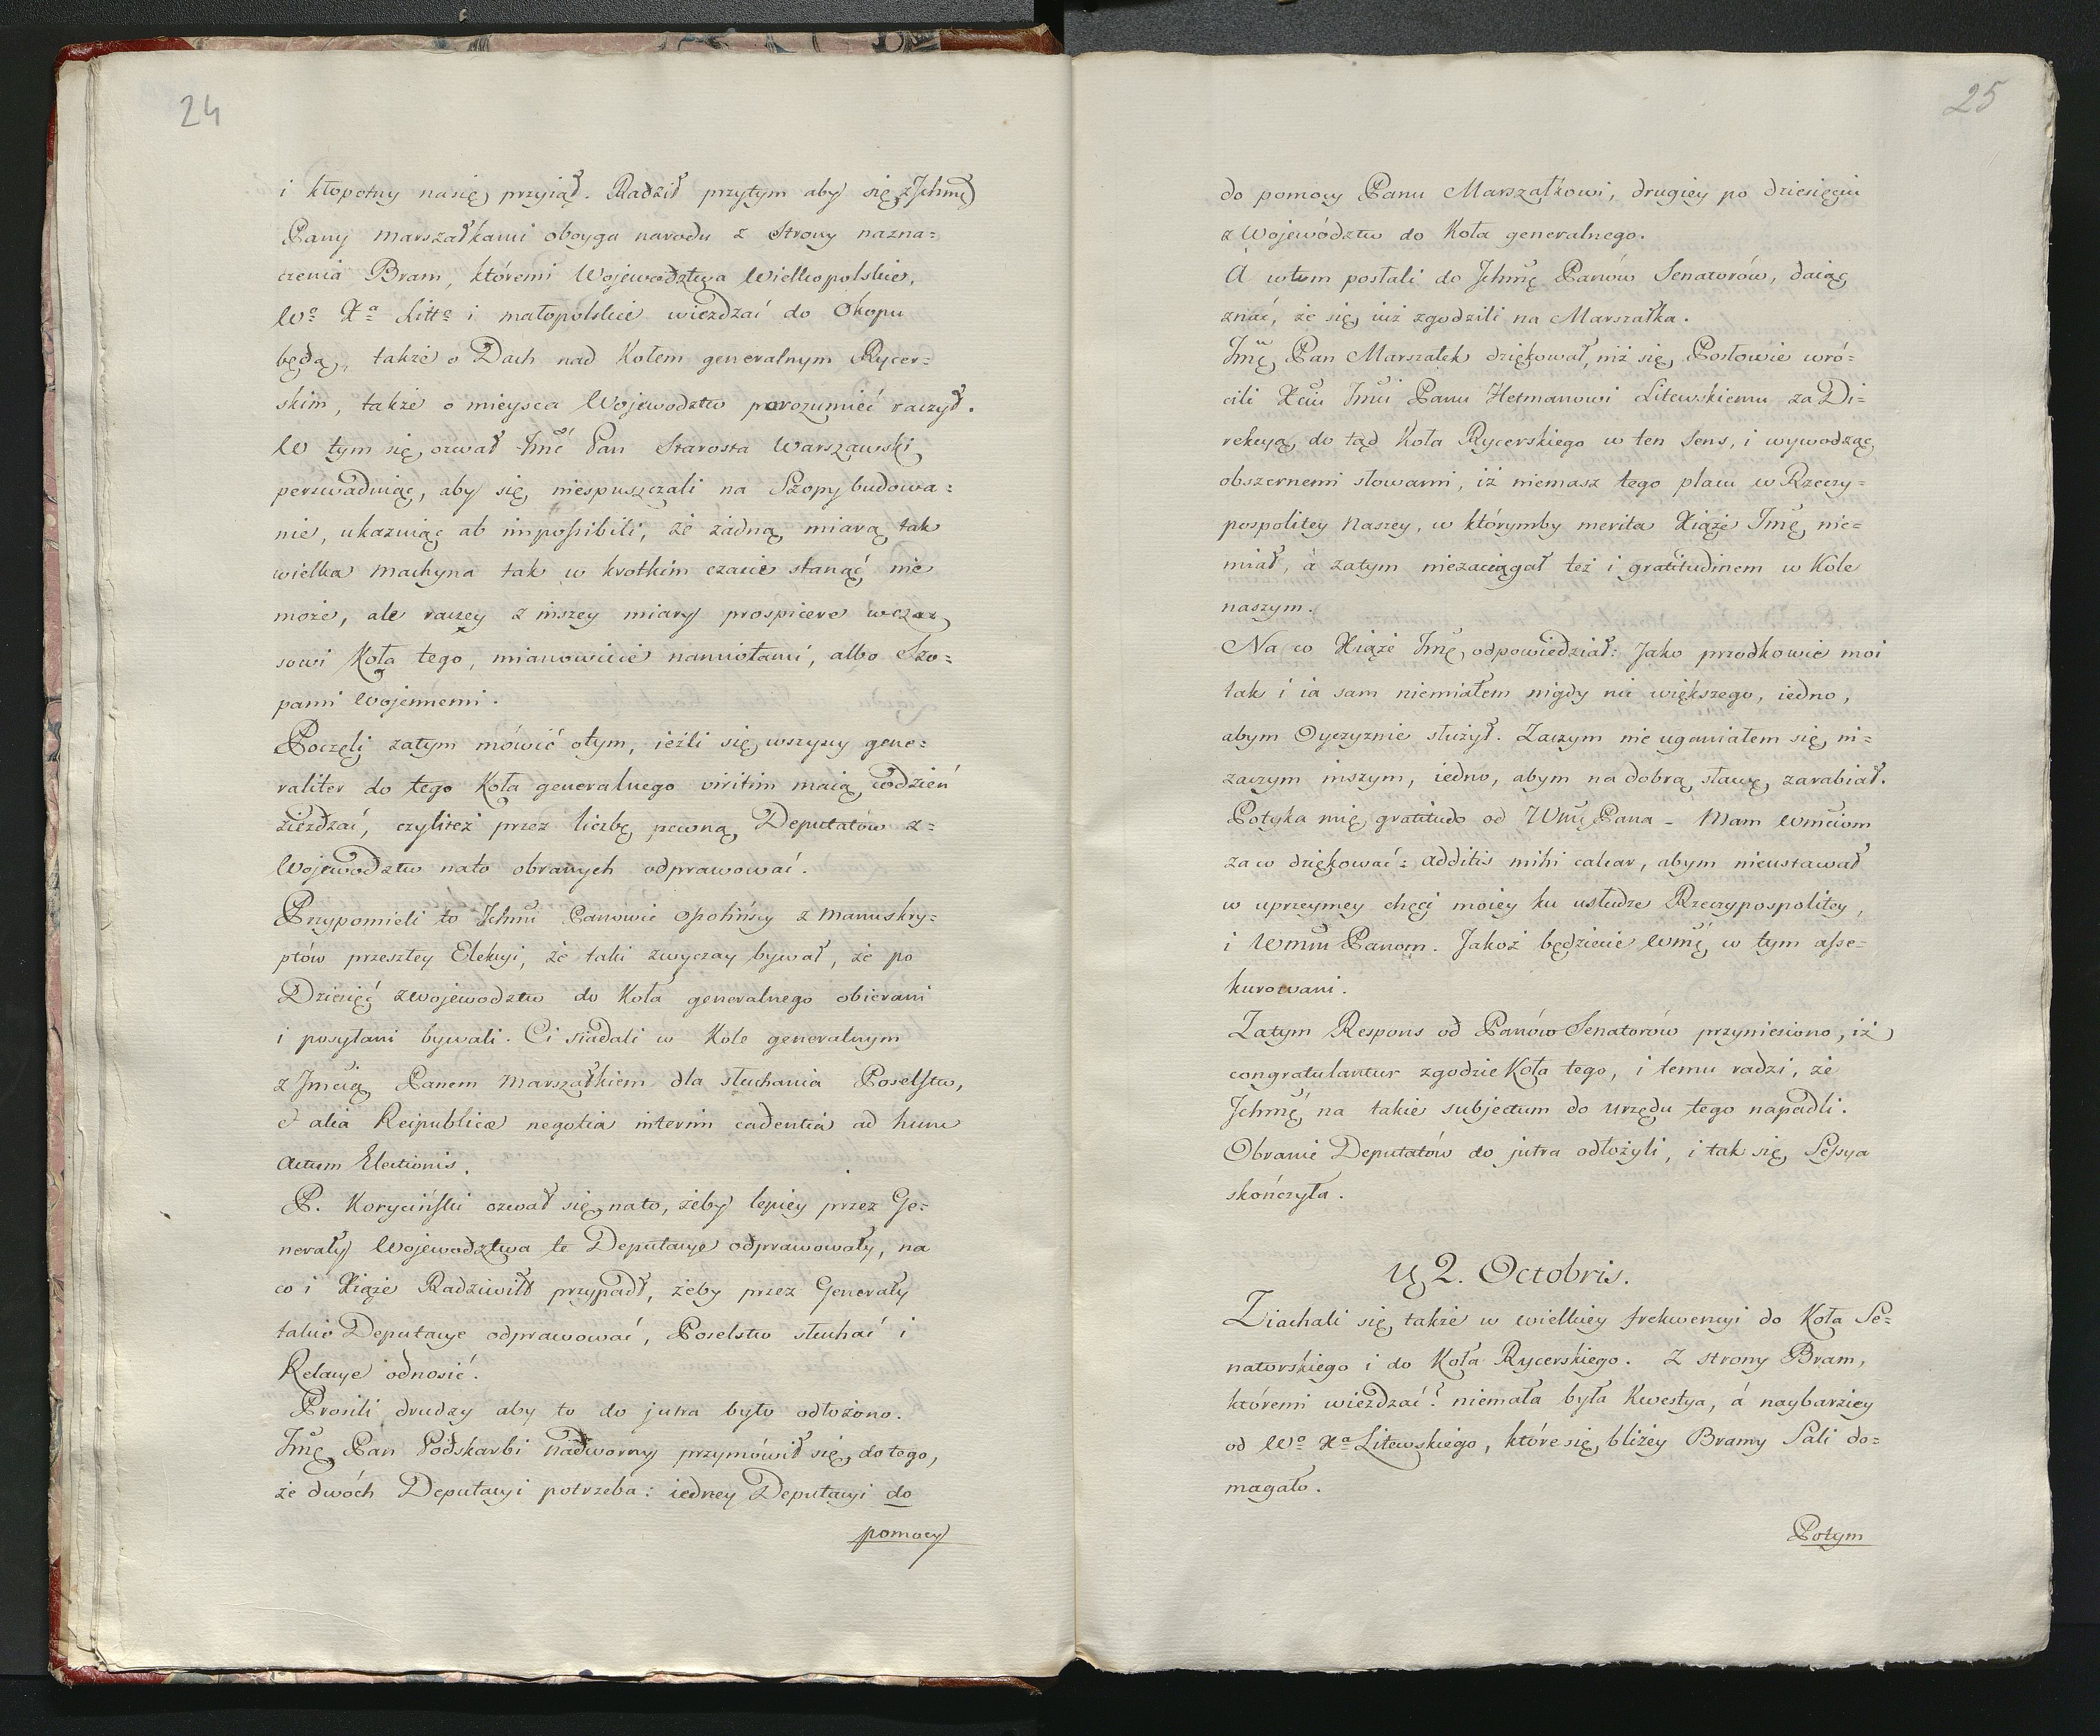 24
i kłopotny nasię przyiął. Radził przytym aby się z Jchmę
Pany marszałkami oboyga narodu z Strony nazna=
czenia Bram, któremi Wojewodztwa Wielkopolskie,
Wo Xa Litto i małopolskie wieżdzać do Okopu
będą, także o Dach nad Kołem generalnym Rycer=
skim, także o mieysca Wojewodztw porozumieć raczył.
W tym się ozwał Jmć Pan Starosta Warszawski
perswaduiąc, aby się niespuszczali na Szopy budowa=
nie, ukazuiąc ab impossibili, że żadną miarą tak
wielka machyna tak w krotkim czasie stanąć nie
może, ale raczey z inszey miary prospicere wczas
sowi Koła tego, mianowicie namiotami, albo Szo=
pami Wojennemi.
Poczęli zatym mówić otym, ieźli się wszyscy gene=
raliter do tego Koła generalnego viritim maią codzień
zieżdzać, czyliteż przez liczbę pewną Deputatów z=
Wojewodztw nato obranych odprawować.
Przypomieli to Jchmć Panowie Opolińscy z manuskry=
ptów przeszłey Elekcyi, że taki zwyczay bywał, że po
Dziesięć zwojewodztw do Koła generalnego obierani
i posyłani bywali. Ci siadali w Kole generalnym
z Jmcią Panem Marszałkiem dla słuchania Poselstw,
et alia Reipublicæ negotia interim cadentia ad hunc
actum Electionis.
P. Koryciński ozwał się nato, żeby lepiey przez Ge=
nerały Wojewodztwa te Deputacye odprawowały, na
co i Xiąże Radziwiłł przypadł, żeby przez Generały
takie Deputacye odprawować, Poselstw słuchać i
Relacye odnosić.
Prosili drudzy aby to do jutra było odłożono.
Jmć Pan Podskarbi Nadworny przymówił się do tego,
że dwóch Deputacyi potrzeba: iedney Deputacyi do
pomocy
25
do pomocy Panu Marszałkowi, drugiey po dziesięciu
z Wojewódzctw do Koła generalnego.
A wtym posłali do Jchmć Panów Senatorów, daiąc
znać, że się iuż zgodzili na Marszałka.
Jmć Pan Marszałek dziękował, niż się Posłowie wró=
cili Xciu Jmci Panu Hetmanowi Litewskiemu za Di=
rekcyą do tąd Koła Rycerskiego w ten sens, i wywodząc
obszernemi słowami, iż niemasz tego placu w Rzeczy=
pospolitey Naszey, w którymby merita Xiąże Jmć nie=
miał, á zatym niezaciągał też i gratitudinem w Kole
naszym.
Na co Xiąże Jmć odpowiedział: Jako przodkowie moi
tak i ia sam niemiałem nigdy nic większego, iedno,
abym Oyczyznie służył. Zaczym nie uganiałem się ni=
zaczym inszym, iedno, abym na dobrą sławę zarabiał.
Potyka mię gratitudo od Wmć Pana – Mam Wmciom
za co dziękować: additis mihi calcar, abym nieustawał
w uprzeymey chęci moiey ku usłudze Rzeczypospolitey,
i Wmm Panom. Jakoż będziecie Wmć w tym asse=
kurowani.
Zatym Respons od Panów Senatorów przyniesiono, iż
congratulantur zgodzie Koła tego, i temu radzi, że
Jchmć na takie subjectum do urzędu tego napadli.
Obranie Deputatów do jutra odłożyli, i tak się Sessya
skończyła.
2. Octobris.
Ziachali się także w wielkiey frekwencyi do Koła Se=
natorskiego i do Koła Rycerskiego. Z strony Bram,
któremi wieżdzać? niemała była Kwestya, á naybarziey
od Wo Xa Litewskiego, które się bliżey Bramy Sali do=
magało.
Potym